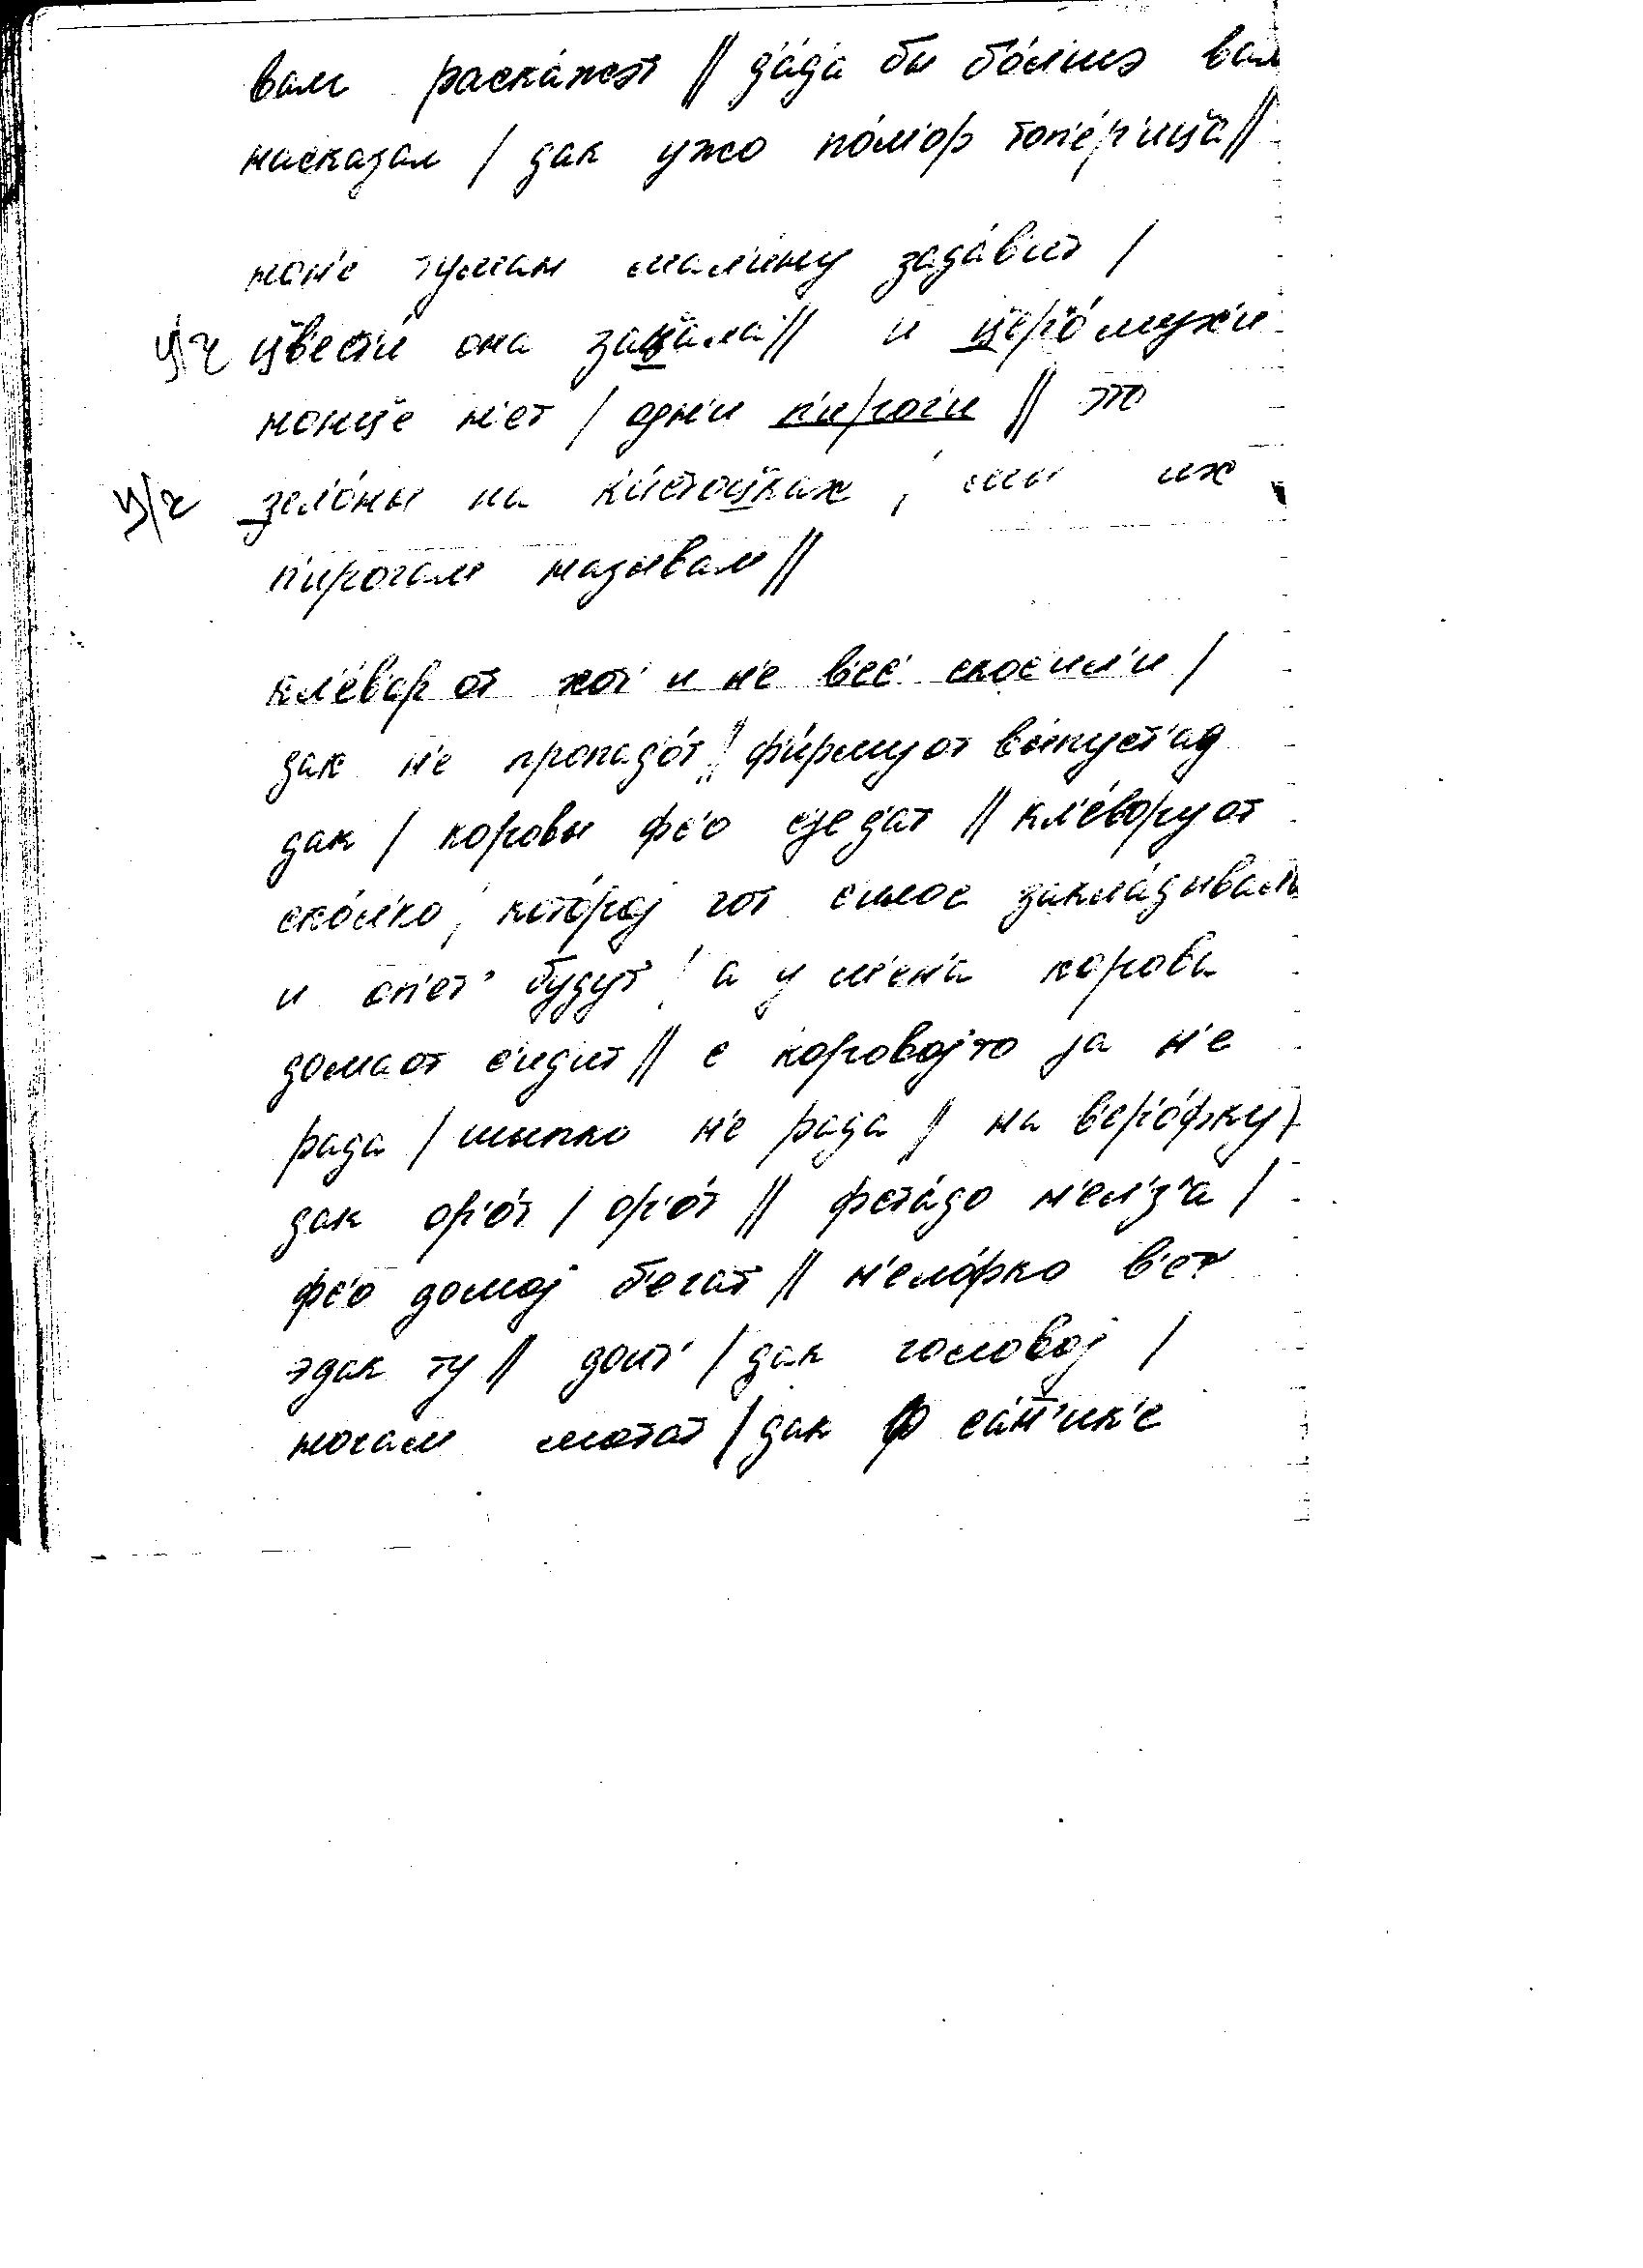 вам раска́жэт // д'а́д'а бы бо́л'шэ вам
насказал / дак ужо по́м'ор топ'е́р'ица //
нон'е туман мал'ину зада́в'ит /
ц/ч цв'ест'и́ она зац'ала // и ц'ер'о́мух'и
нонц'е н'ет / одн'и п'ирог'и // это
ц/ч з'ел'о́ны на к'и́стоцках / мы их
п'ирогам называм //
кл'е́вор от хот' и н'е в'ес' скос'ил'и /
дак н'е пропад'о́т // ф'и́рму от вы́пуст'ад
дак / коровы фс'о сјед'ат // кл'е́вору от
ско́л'ко / кото́рој гот с'илос закла́дывал'и
и оп'ет' будут / а у м'ен'а корова
дома от с'ид'ит // с коровој то ја н'е
рада / шыпко н'е рада // на в'ер'о́фку /
дак ор'о́т / ор'о́т // фста́до н'ел'з'а /
фс'о домој б'егат // н'ело́фко в'ет
эдак ту // доит' / дак головој /
ногам мотат / дак ф са́н'ик'е